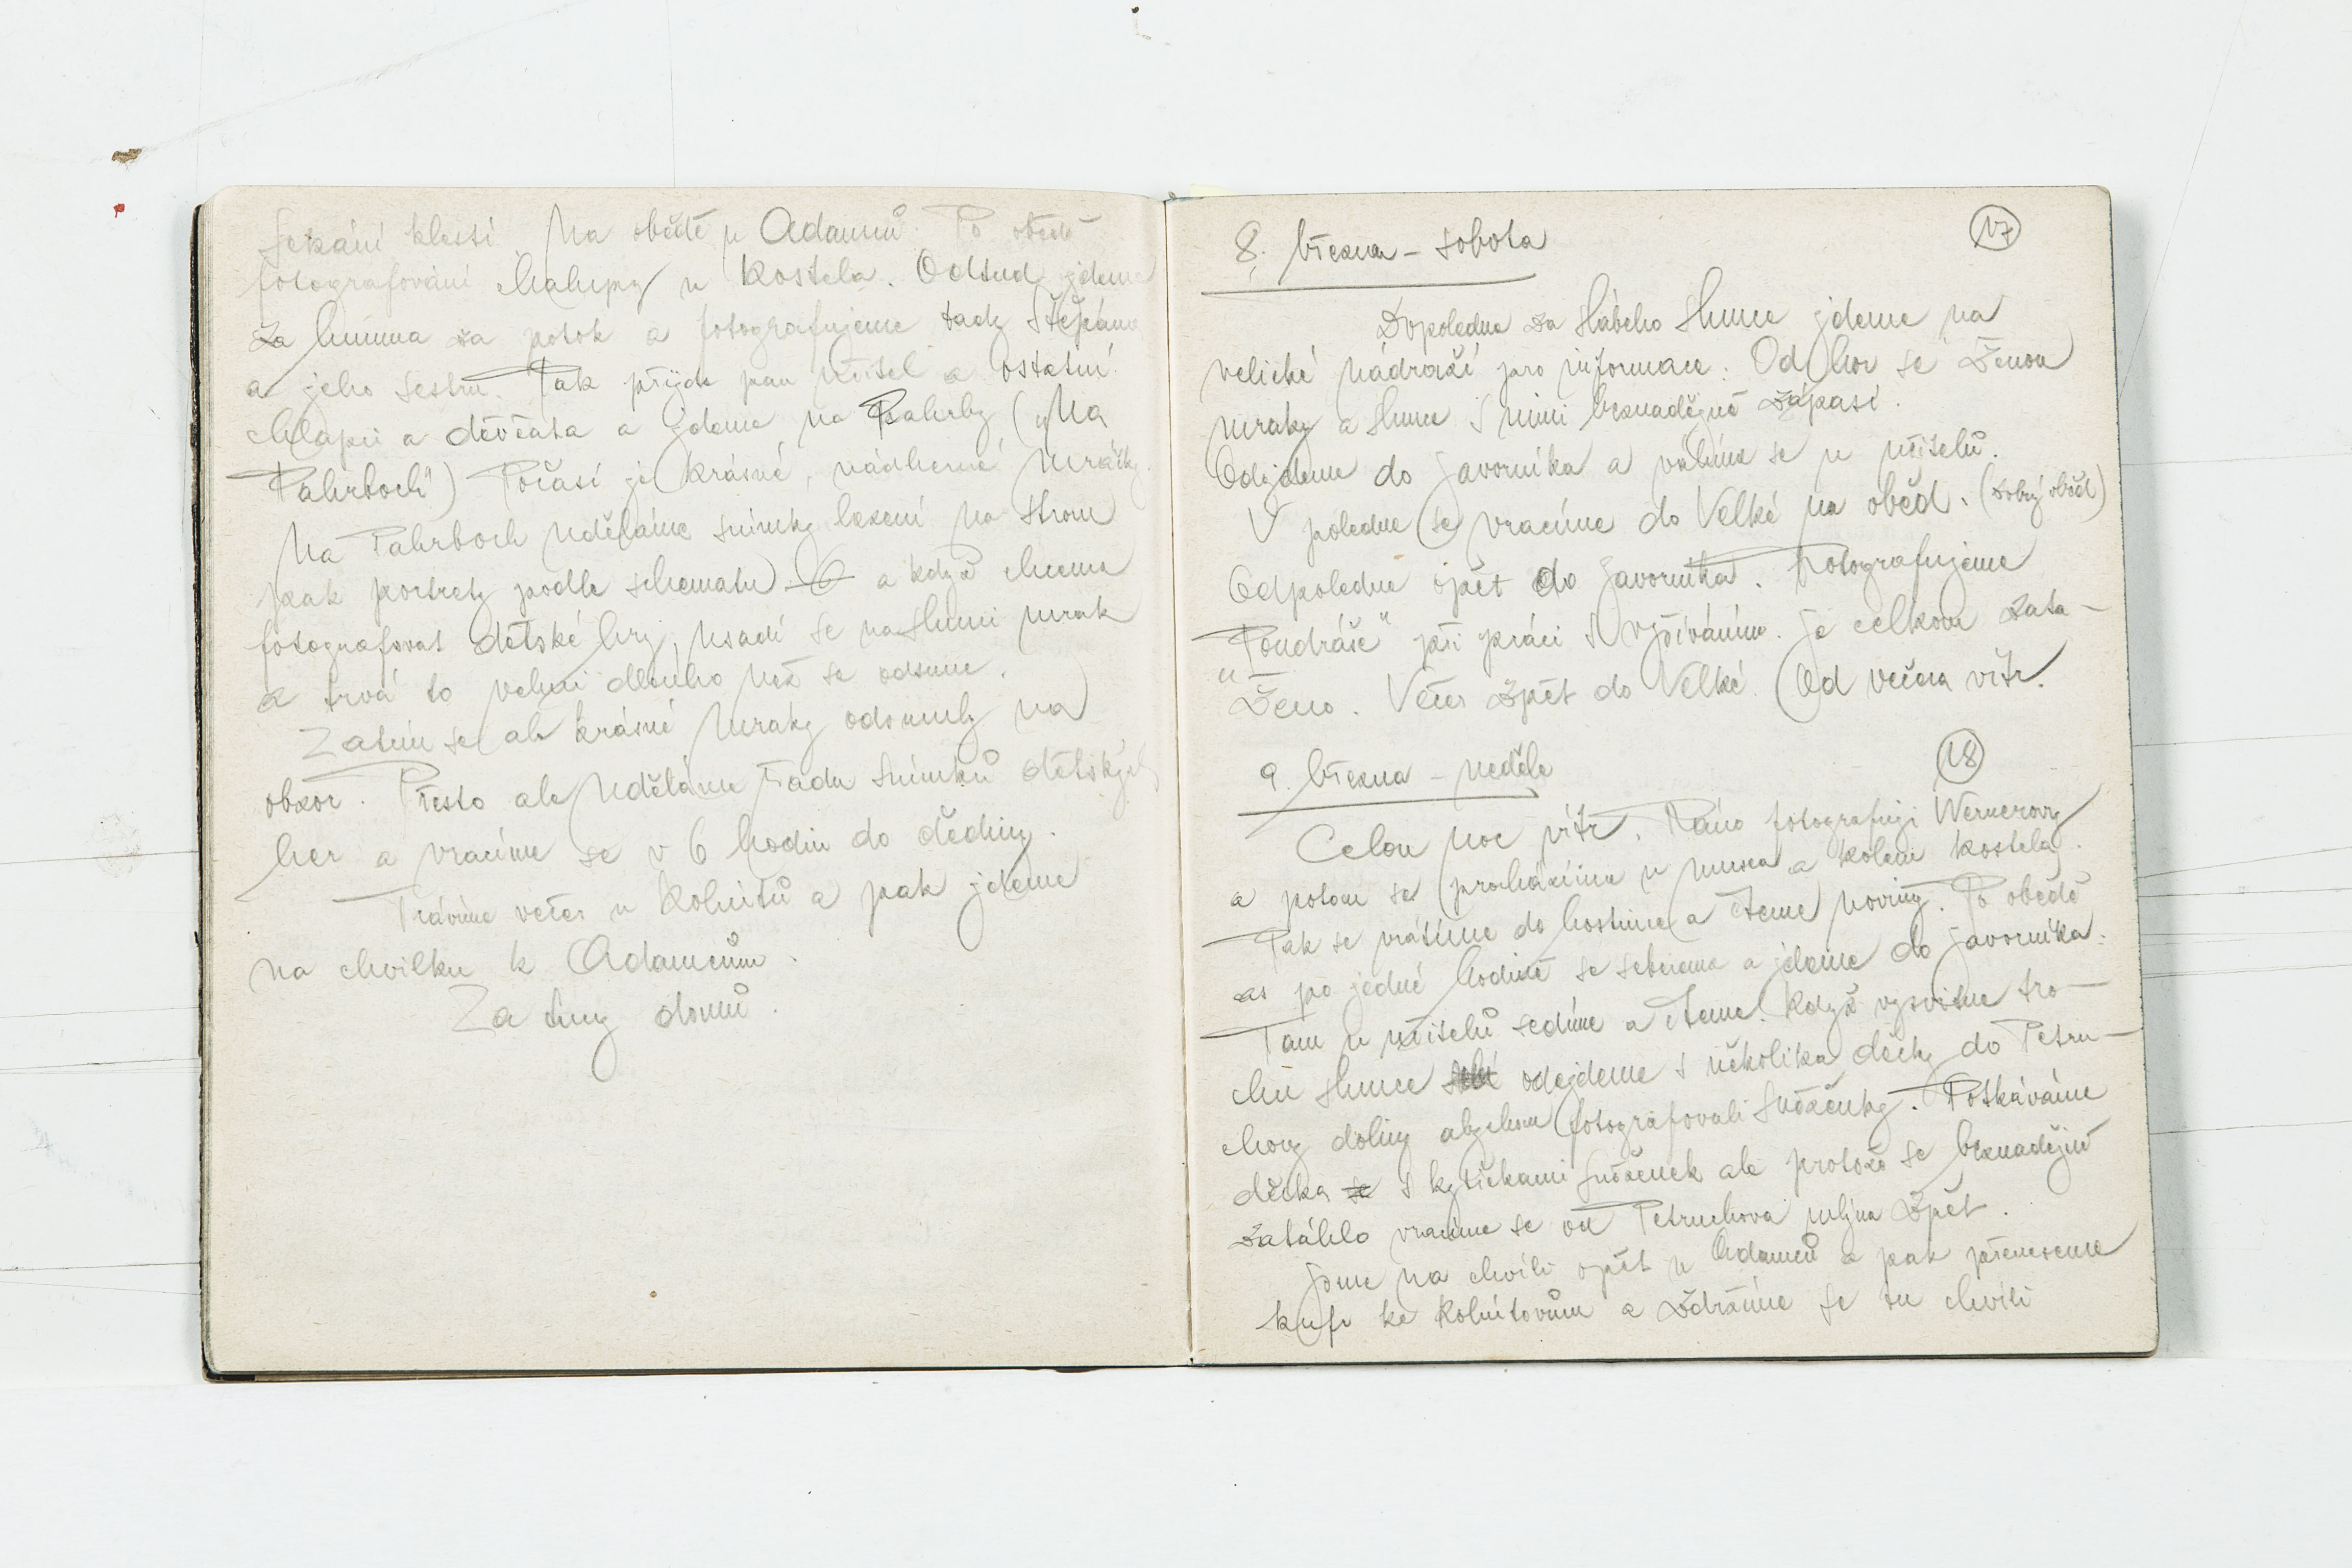 sekání klestí. Na obědě u Adamů. Po obědě
fotografování chalupy u kostela. Odtud jdeme
za humna za potok a fotografujeme tady Štěpána
a jeho sestru. Pak přijde pan učitel a ostatní
chlapci a děvčata a jdeme na Pahrby („Na
Pahrboch") Počasí je krásné, nádherné mráčky.
Na Pahrboch uděláme snímky lezení na strom
pak portrety podle schematu a když chceme
fotografovat dětské hry, usadí se na slunci mrak
a trvá to velmi dlouho než se odsune.
Zatím se ale krásné mraky odsunuly na
obzor. Přesto ale uděláme řadu snímků dětských
her a vracíme se v 6 hodin do dědiny.
Trávíme večer u Kohútů a pak jdeme
na chvilku k Adamcům.
Za tmy domů.
17
8. března – sobota
Dopoledne za slabého slunce jdeme na
velické nádraží pro informace. Od hor se ženou
mraky a slunce s nimi beznadějně zápasí.
Odjdeme do Javorníka a válíme se u učitelů.
V poledne se vracíme do Velké na oběd. (dobrý oběd)
Odpoledne opět do Javorníka. Fotografujeme
„Pondráše" při práci s vyšíváním. Je celkem zata-
ženo. Večer zpět do Velké. Od večera vítr.
18
9. března – neděle
Celou noc vítr. Ráno fotografuji Wernerovy
a potom se procházíme u musea a kolem kostela.
Pak se vrátíme do hostince a čteme noviny. Po obědě
as po jedné hodině se sebereme a jdeme do Javorníka.
Tam u učitelů sedíme a čteme. Když vysvitne tro-
chu slunce odejdeme s několika děcky do Petru-
chovy doliny abychom fotografovali sněženky. Potkáváme
děcka se s kytičkami sněženek ale protože se beznadějně
zatáhlo vracíme se od Petruchova mlýna zpět.
Jsme na chvíli opět u Adamců a pak přeneseme
kufr ke Kohútovům a zdržíme se tu chvíli